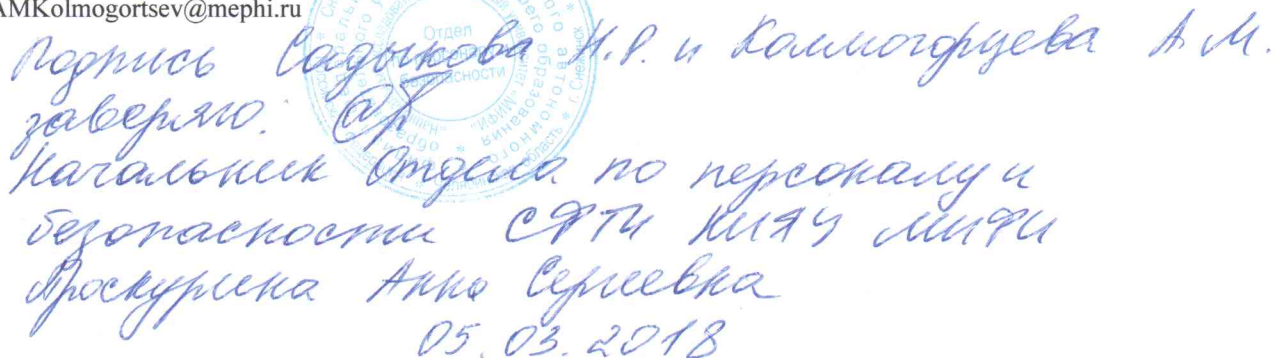 AMKolmogortsev@mephi.ru
Подпись Садыкова Н.Р. и Колмогорцева А.М.
заверяю.
Начальник Отдела по персоналу и
безопасности СФТИ НИЯУ МИФИ
Проскурина Анна Сергеевна
05.03.2018
Отдел
безопасности